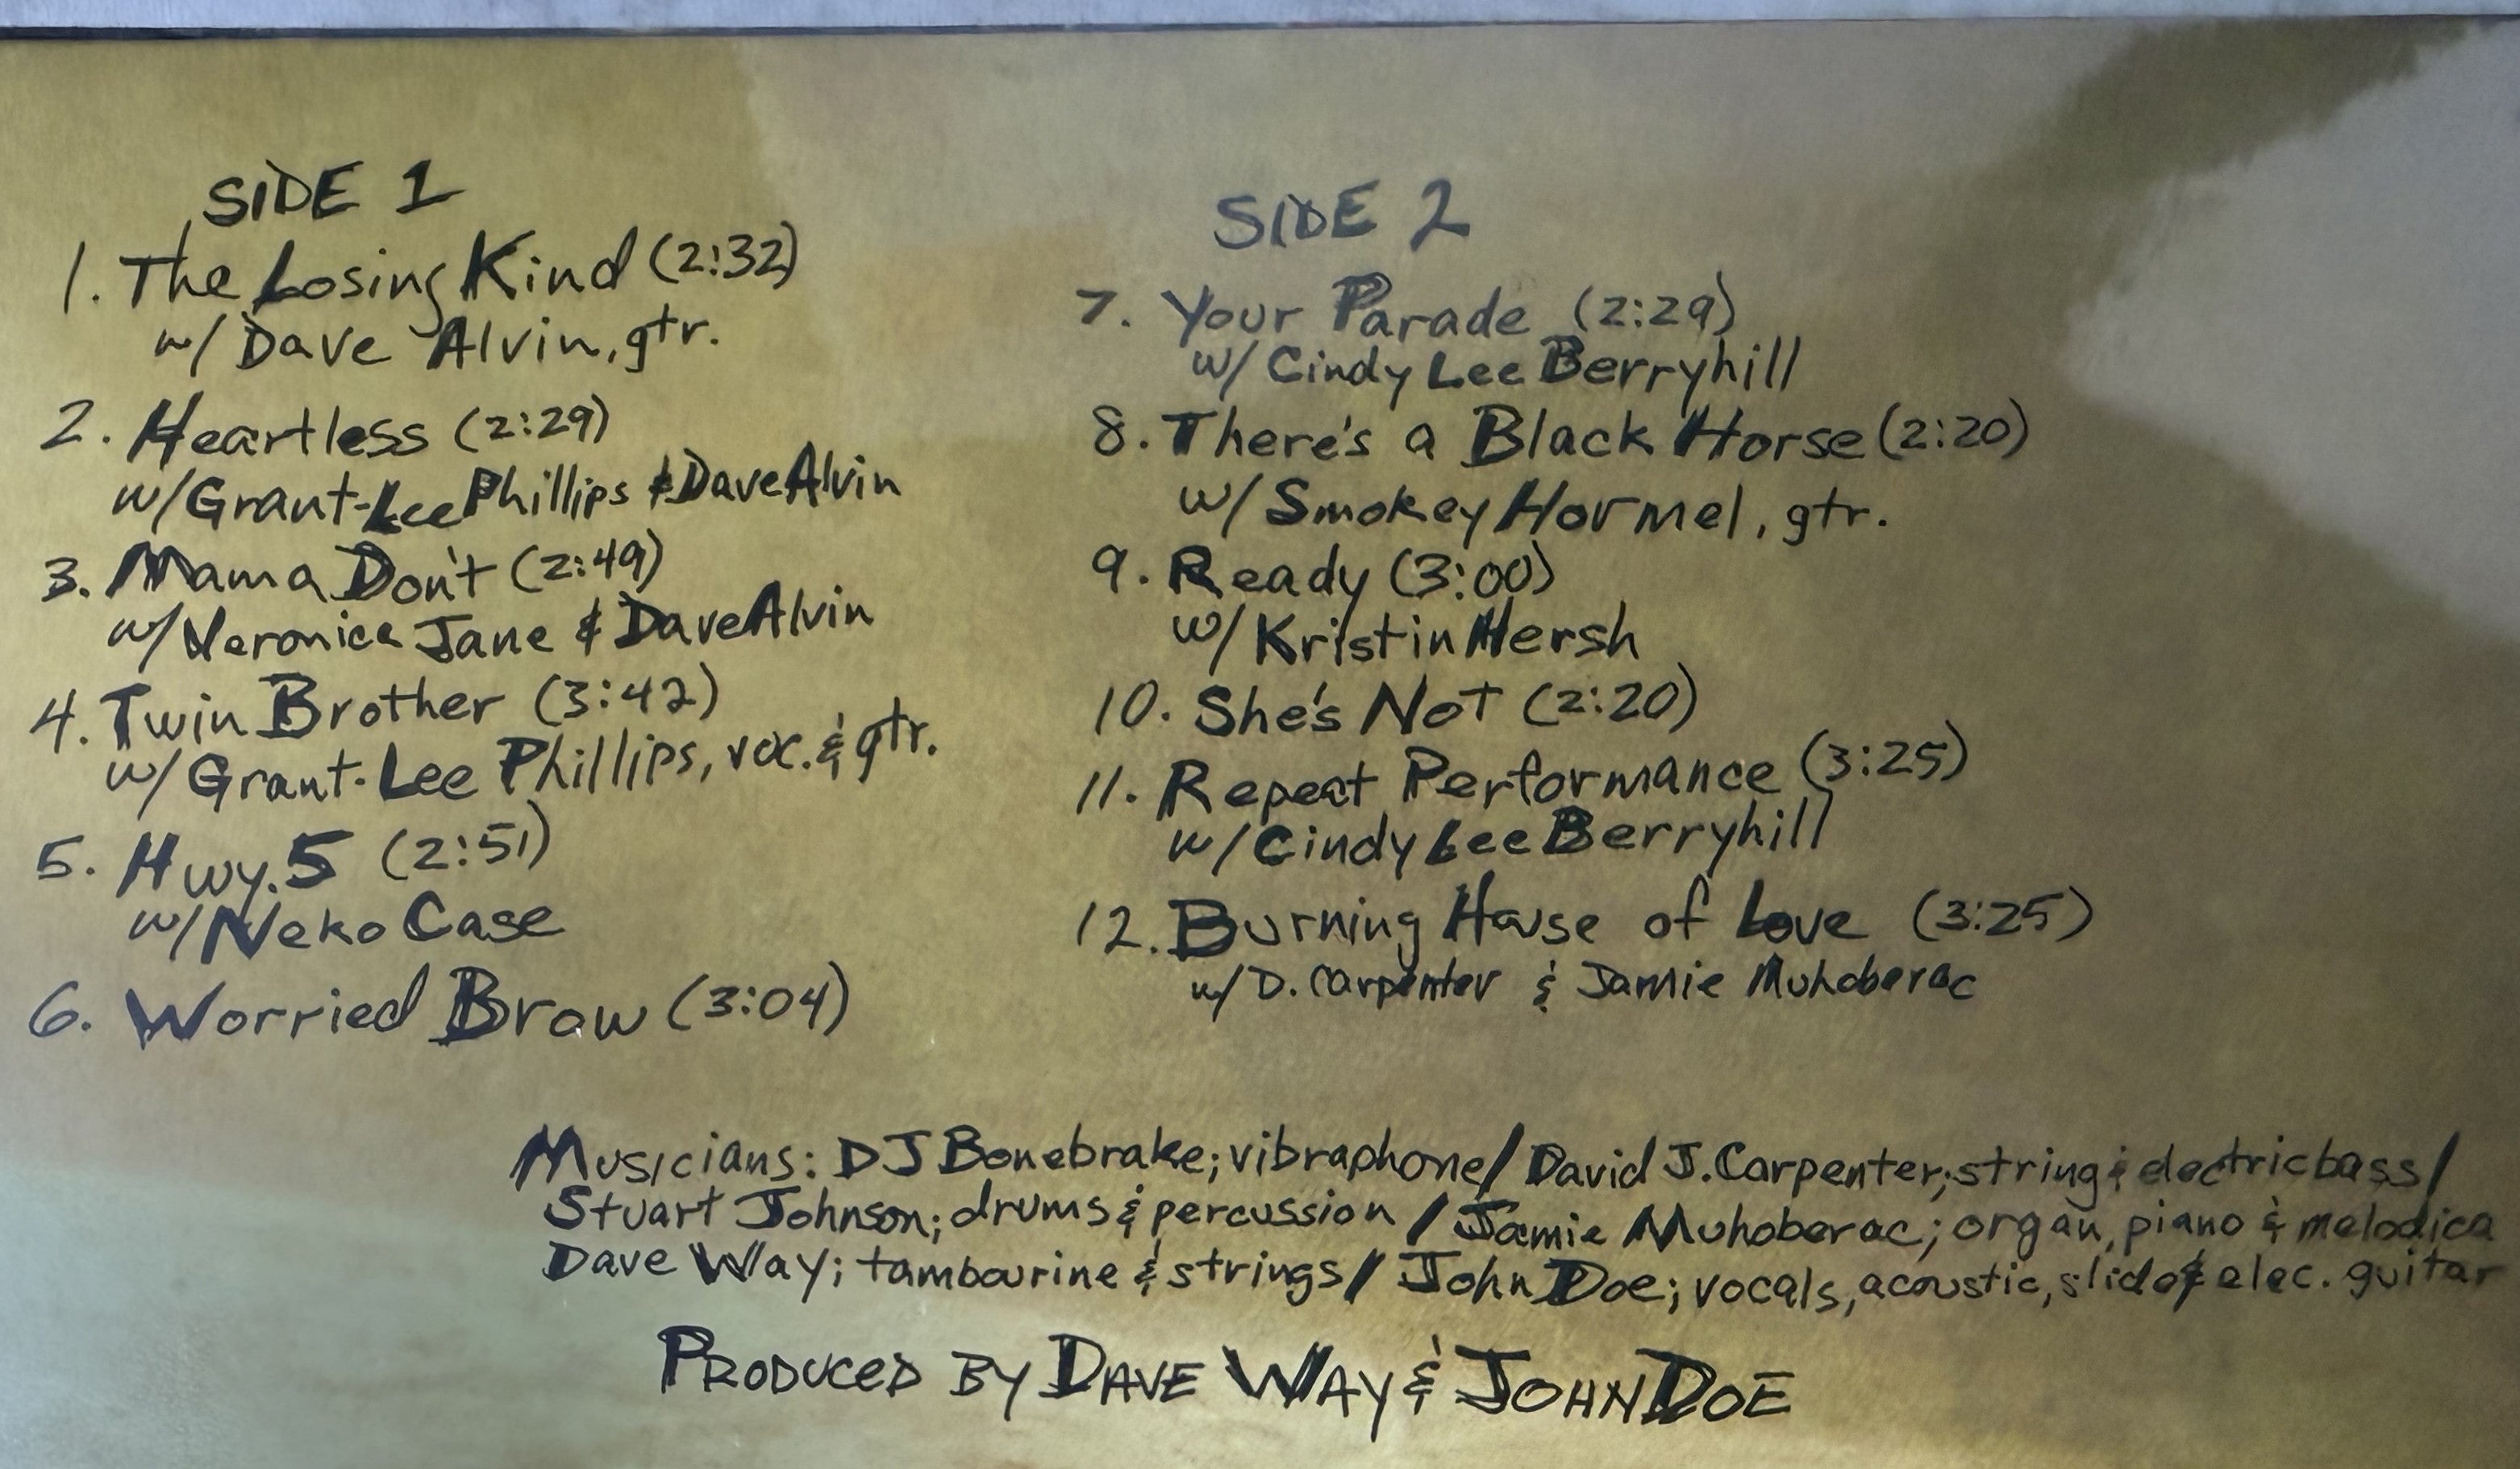 SIDE 1
1. The Losing Kind (2:32)
w/ Dave Alvin, gtr.
2. Heartless (2:29)
w/Grant-Lee Phillips & Dave Alvin
3. Mama Don't (2:49)
w/Veronica Jane & Dave Alvin
4. Twin Brother (3:42)
w/ Grant-Lee Phillips, voc. & gtr.
5. Hwy. 5 (2:51)
w/Neko Case
6. Worried Brow (3:04)
SIDE 2
7. Your Parade (2:29)
w/ Cindy Lee Berryhill
8. There's a Black Horse (2:20)
w/ Smokey Hormel, gtr.
9. Ready (3:00)
w/ Kristin Hersh
10. She's Not (2:20)
11. Repeat Performance (3:25)
w/ Cindy Lee Berryhill
12. Burning House of Love (3:25)
w/ D. Carpenter & Jamie Muhoberac
Musicians: DJ Bonebrake; vibraphone / David J. Carpenter; string & electric bass /
Stuart Johnson; drums & percussion / Jamie Muhoberac; organ, piano & melodica
Dave Way; tambourine & strings / John Doe; vocals, acoustic, slide & elec. guitar
PRODUCED BY DAVE WAY & JOHN DOE